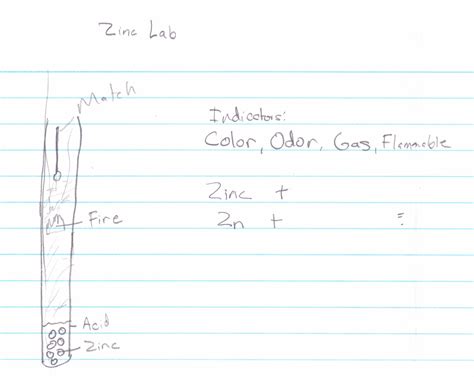 Zinc Lab
Match
Indicators:
Color, Odor, Gas, Flammable
Zinc +
Fire
Zn +
Acid
Zinc